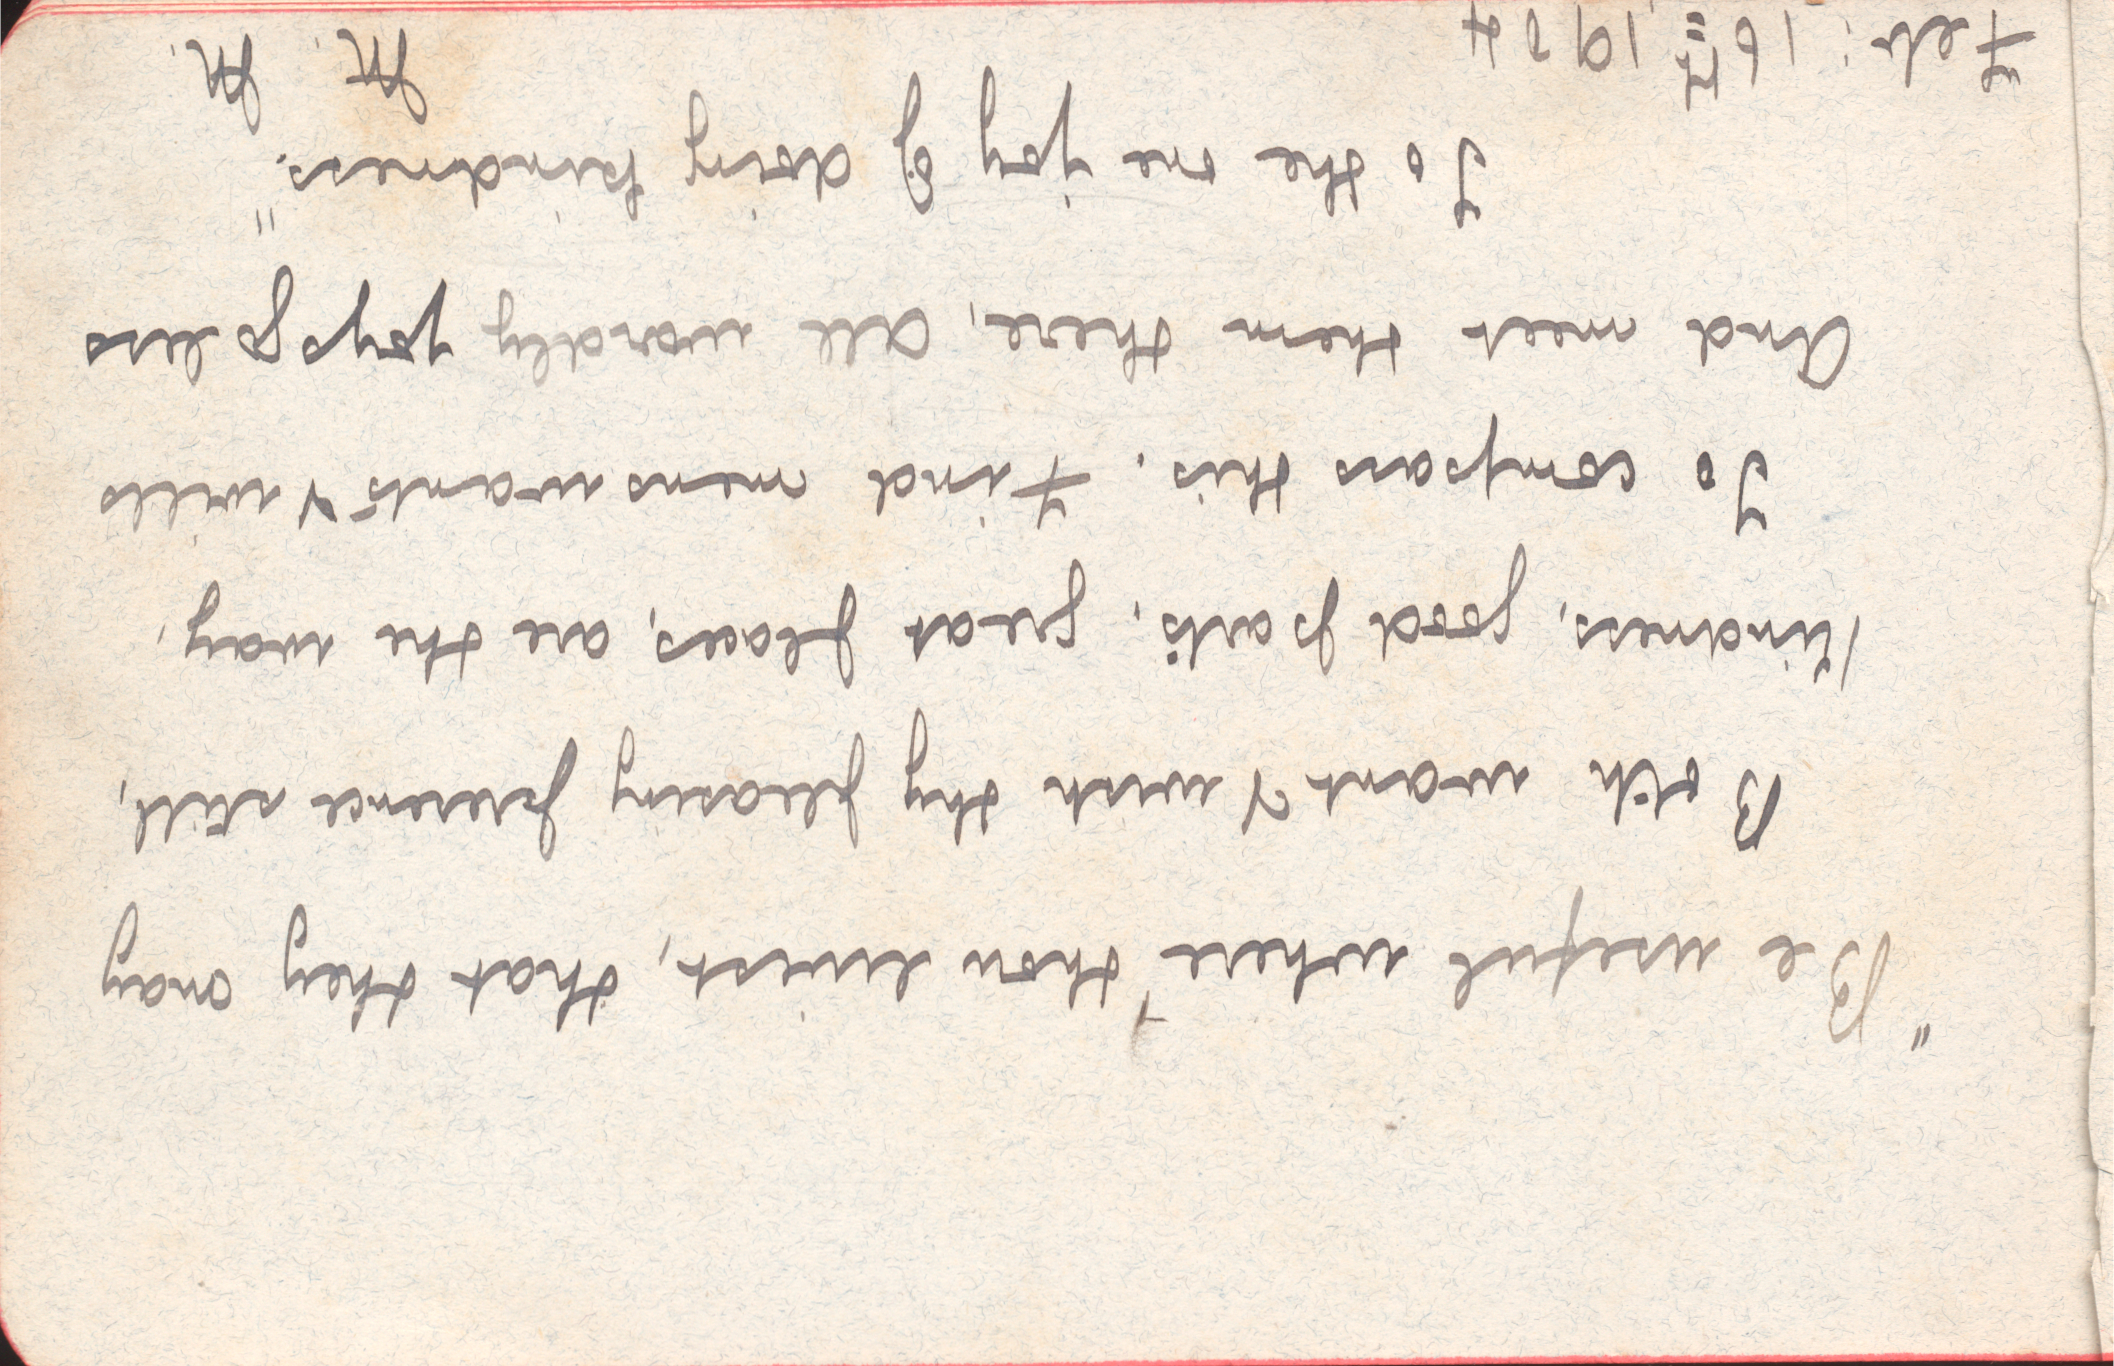 "Be useful where thou livest, that they may
Both want & wish thy pleasing presence still,
Kindness, good parts, great places, are the way,
To compass this. Find mens wants & wills
And meet them there, All wordly joys go less
To the one joy of doing kindness."
M. M.
Feb: 16th 1904